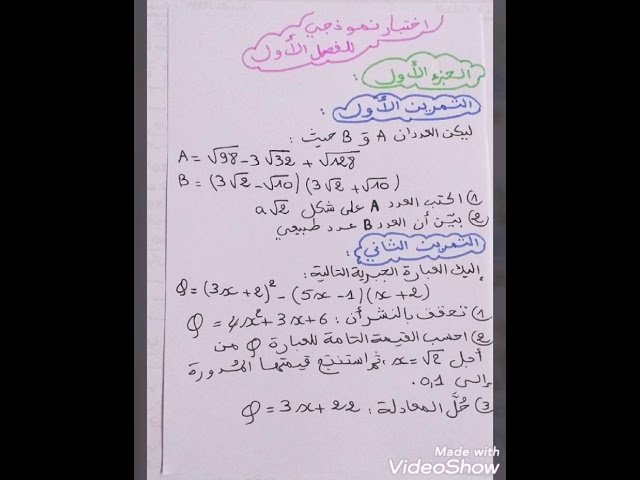 اختبار نموذجي
للفصل الأول
الجزء الأول:
التمرين الأول:
ليكن العددان A و B حيث:
A = √98 - 3√32 + √128
B = (3√2 - √10)(3√2 + √10)
① اكتب العدد A على شكل a√2
② بيّن أن العدد B عدد طبيعي
التمرين الثاني:
إليك العبارة الجبرية التالية:
φ = (3x+2)² - (5x-1)(x+2)
① تحقق بالنشر أن: φ = 4x² + 3x + 6
② احسب القيمة التامة للعبارة φ من
أجل x = √2، ثم استنتج قيمتها المُدورة
إلى 0,1.
③ حُلَّ المعادلة: φ = 3x + 22
Made with
VideoShow